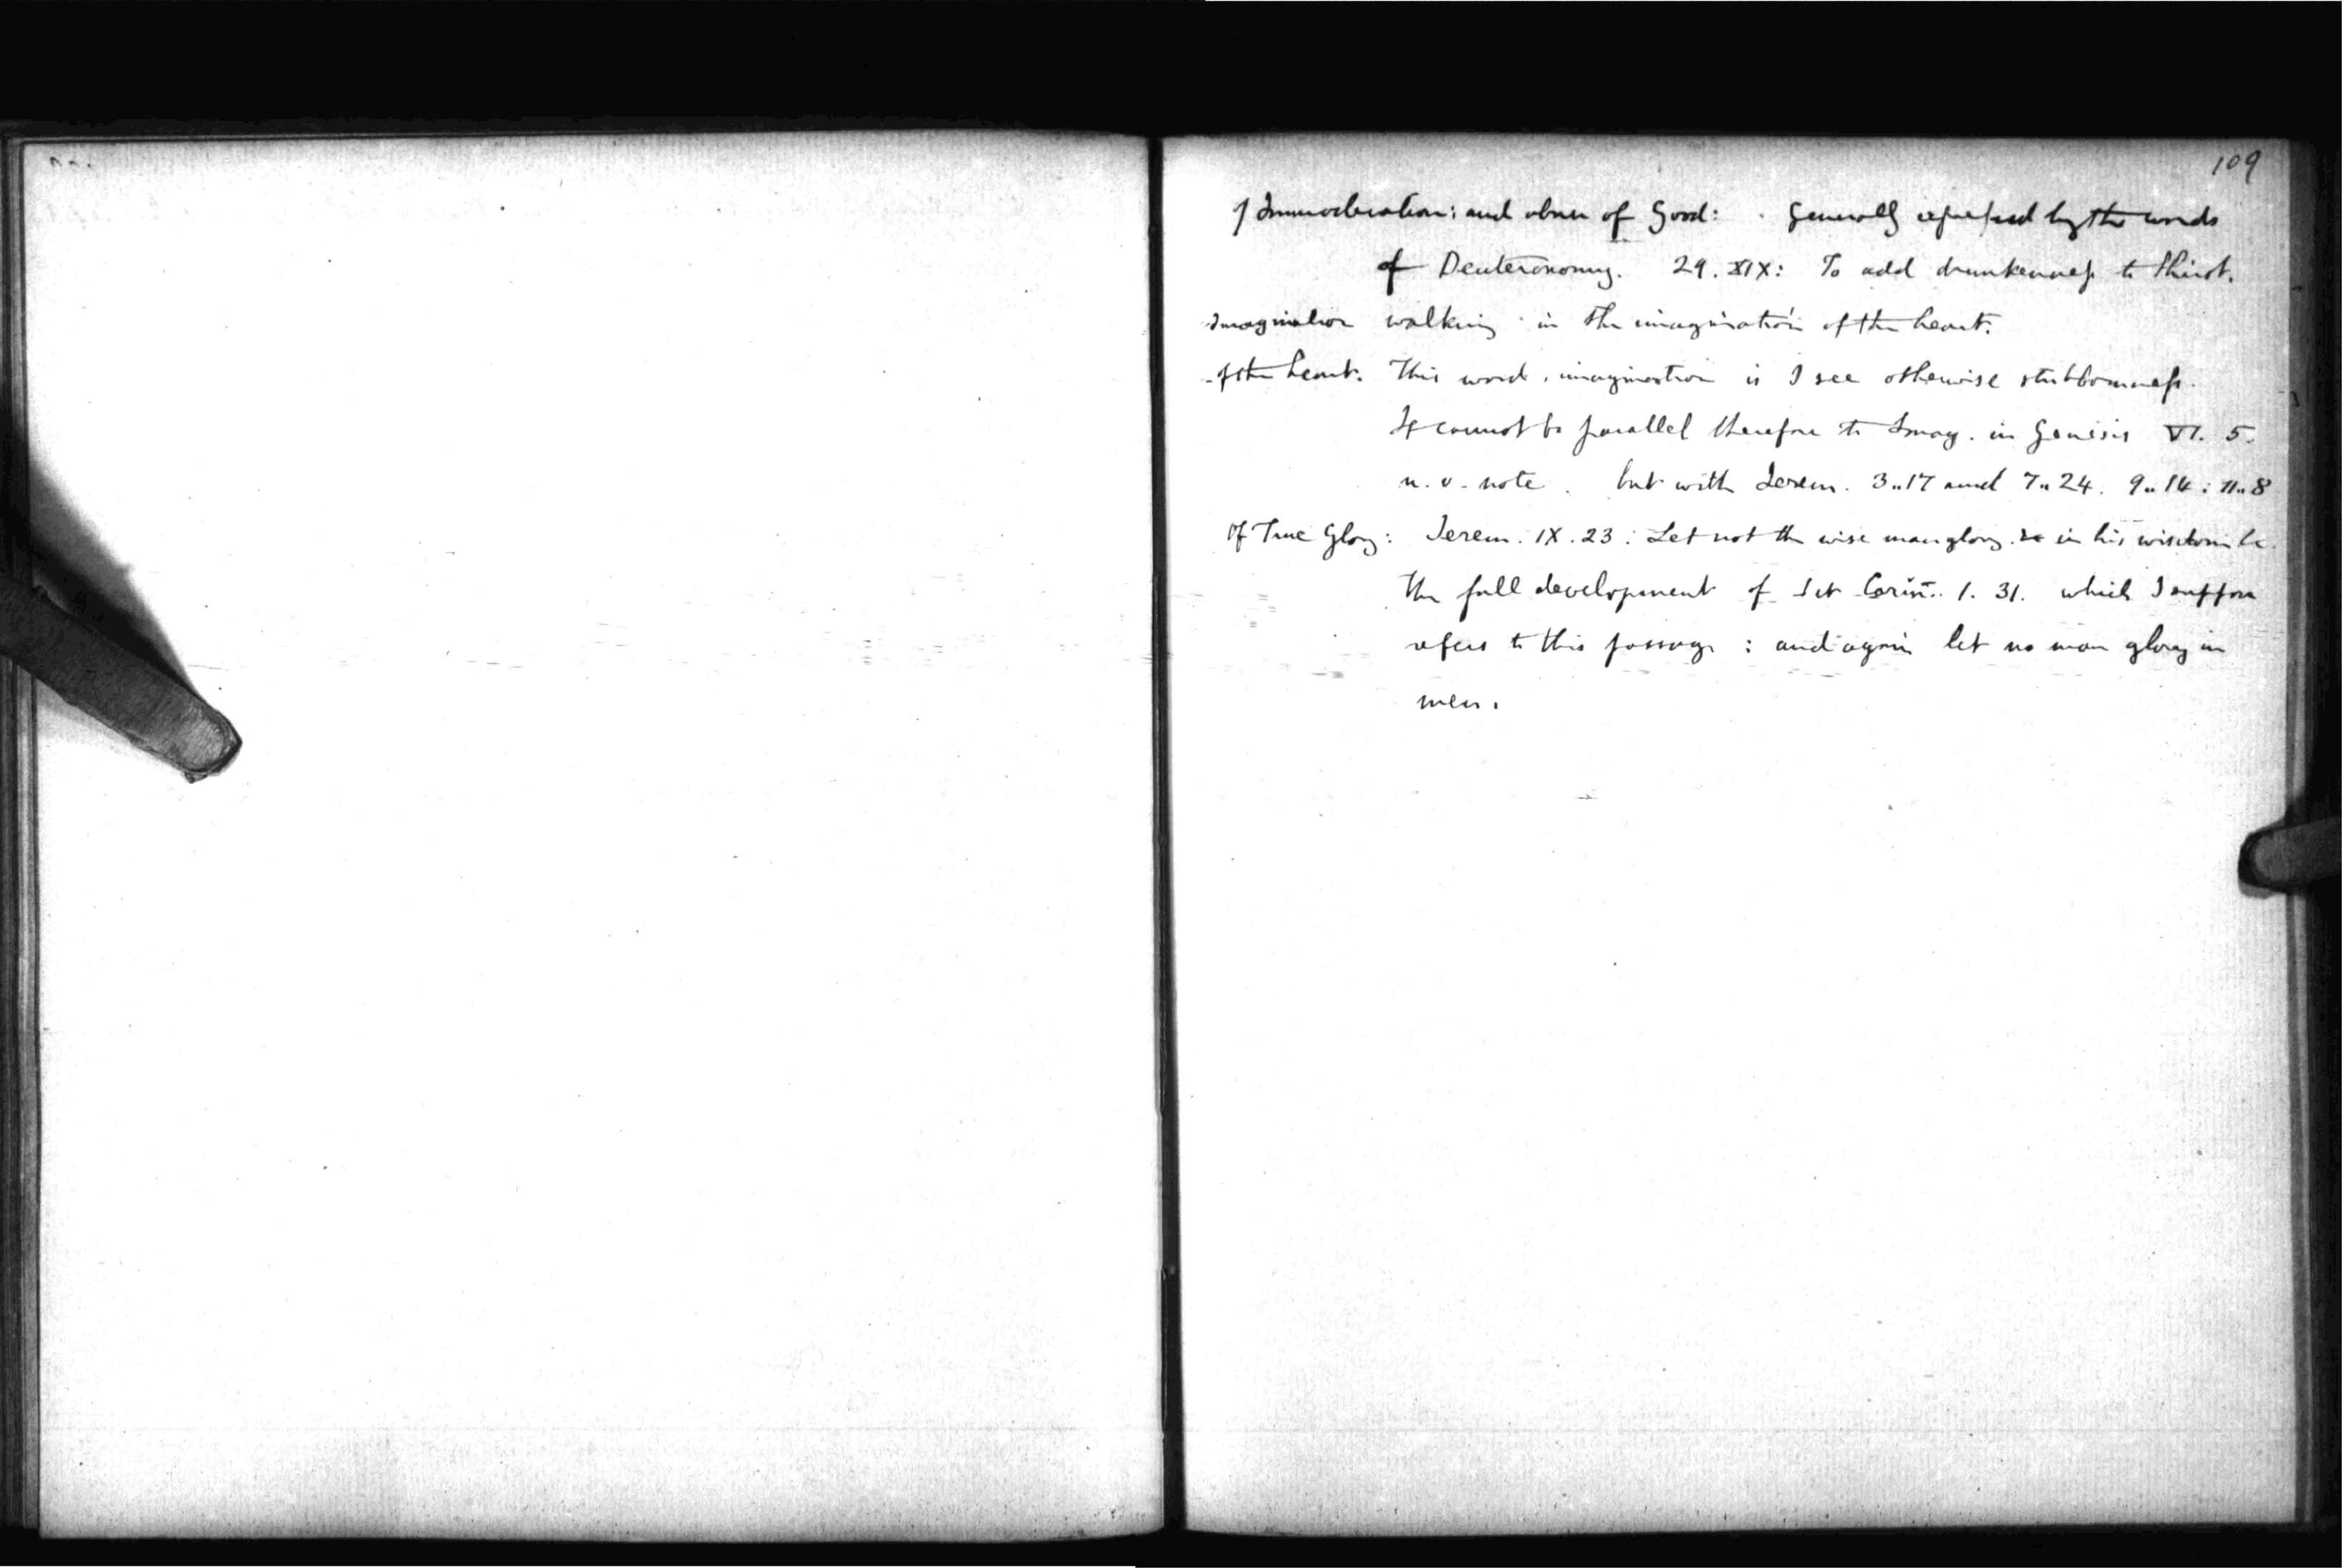 109
of Immoderation: and abuse of Good: Generally expressed by the words
of Deuteronomy. 29. XIX: To add drunkenness to thirst.
Imagination walking in the imagination of the heart.
of the heart. This word, imagination is I see otherwise stubbornness.
It cannot be parallel therefore to Imag. in Genesis VI. 5.
n. v. note. but with Jerem. 3..17 and 7..24. 9..14: 11..8
Of True Glory: Jerem. IX. 23: Let not the wise man glory in his wisdom &c.
the full development of 1st Corin. 1. 31. which I suppose
refers to this passage: and again let no man glory in
men.